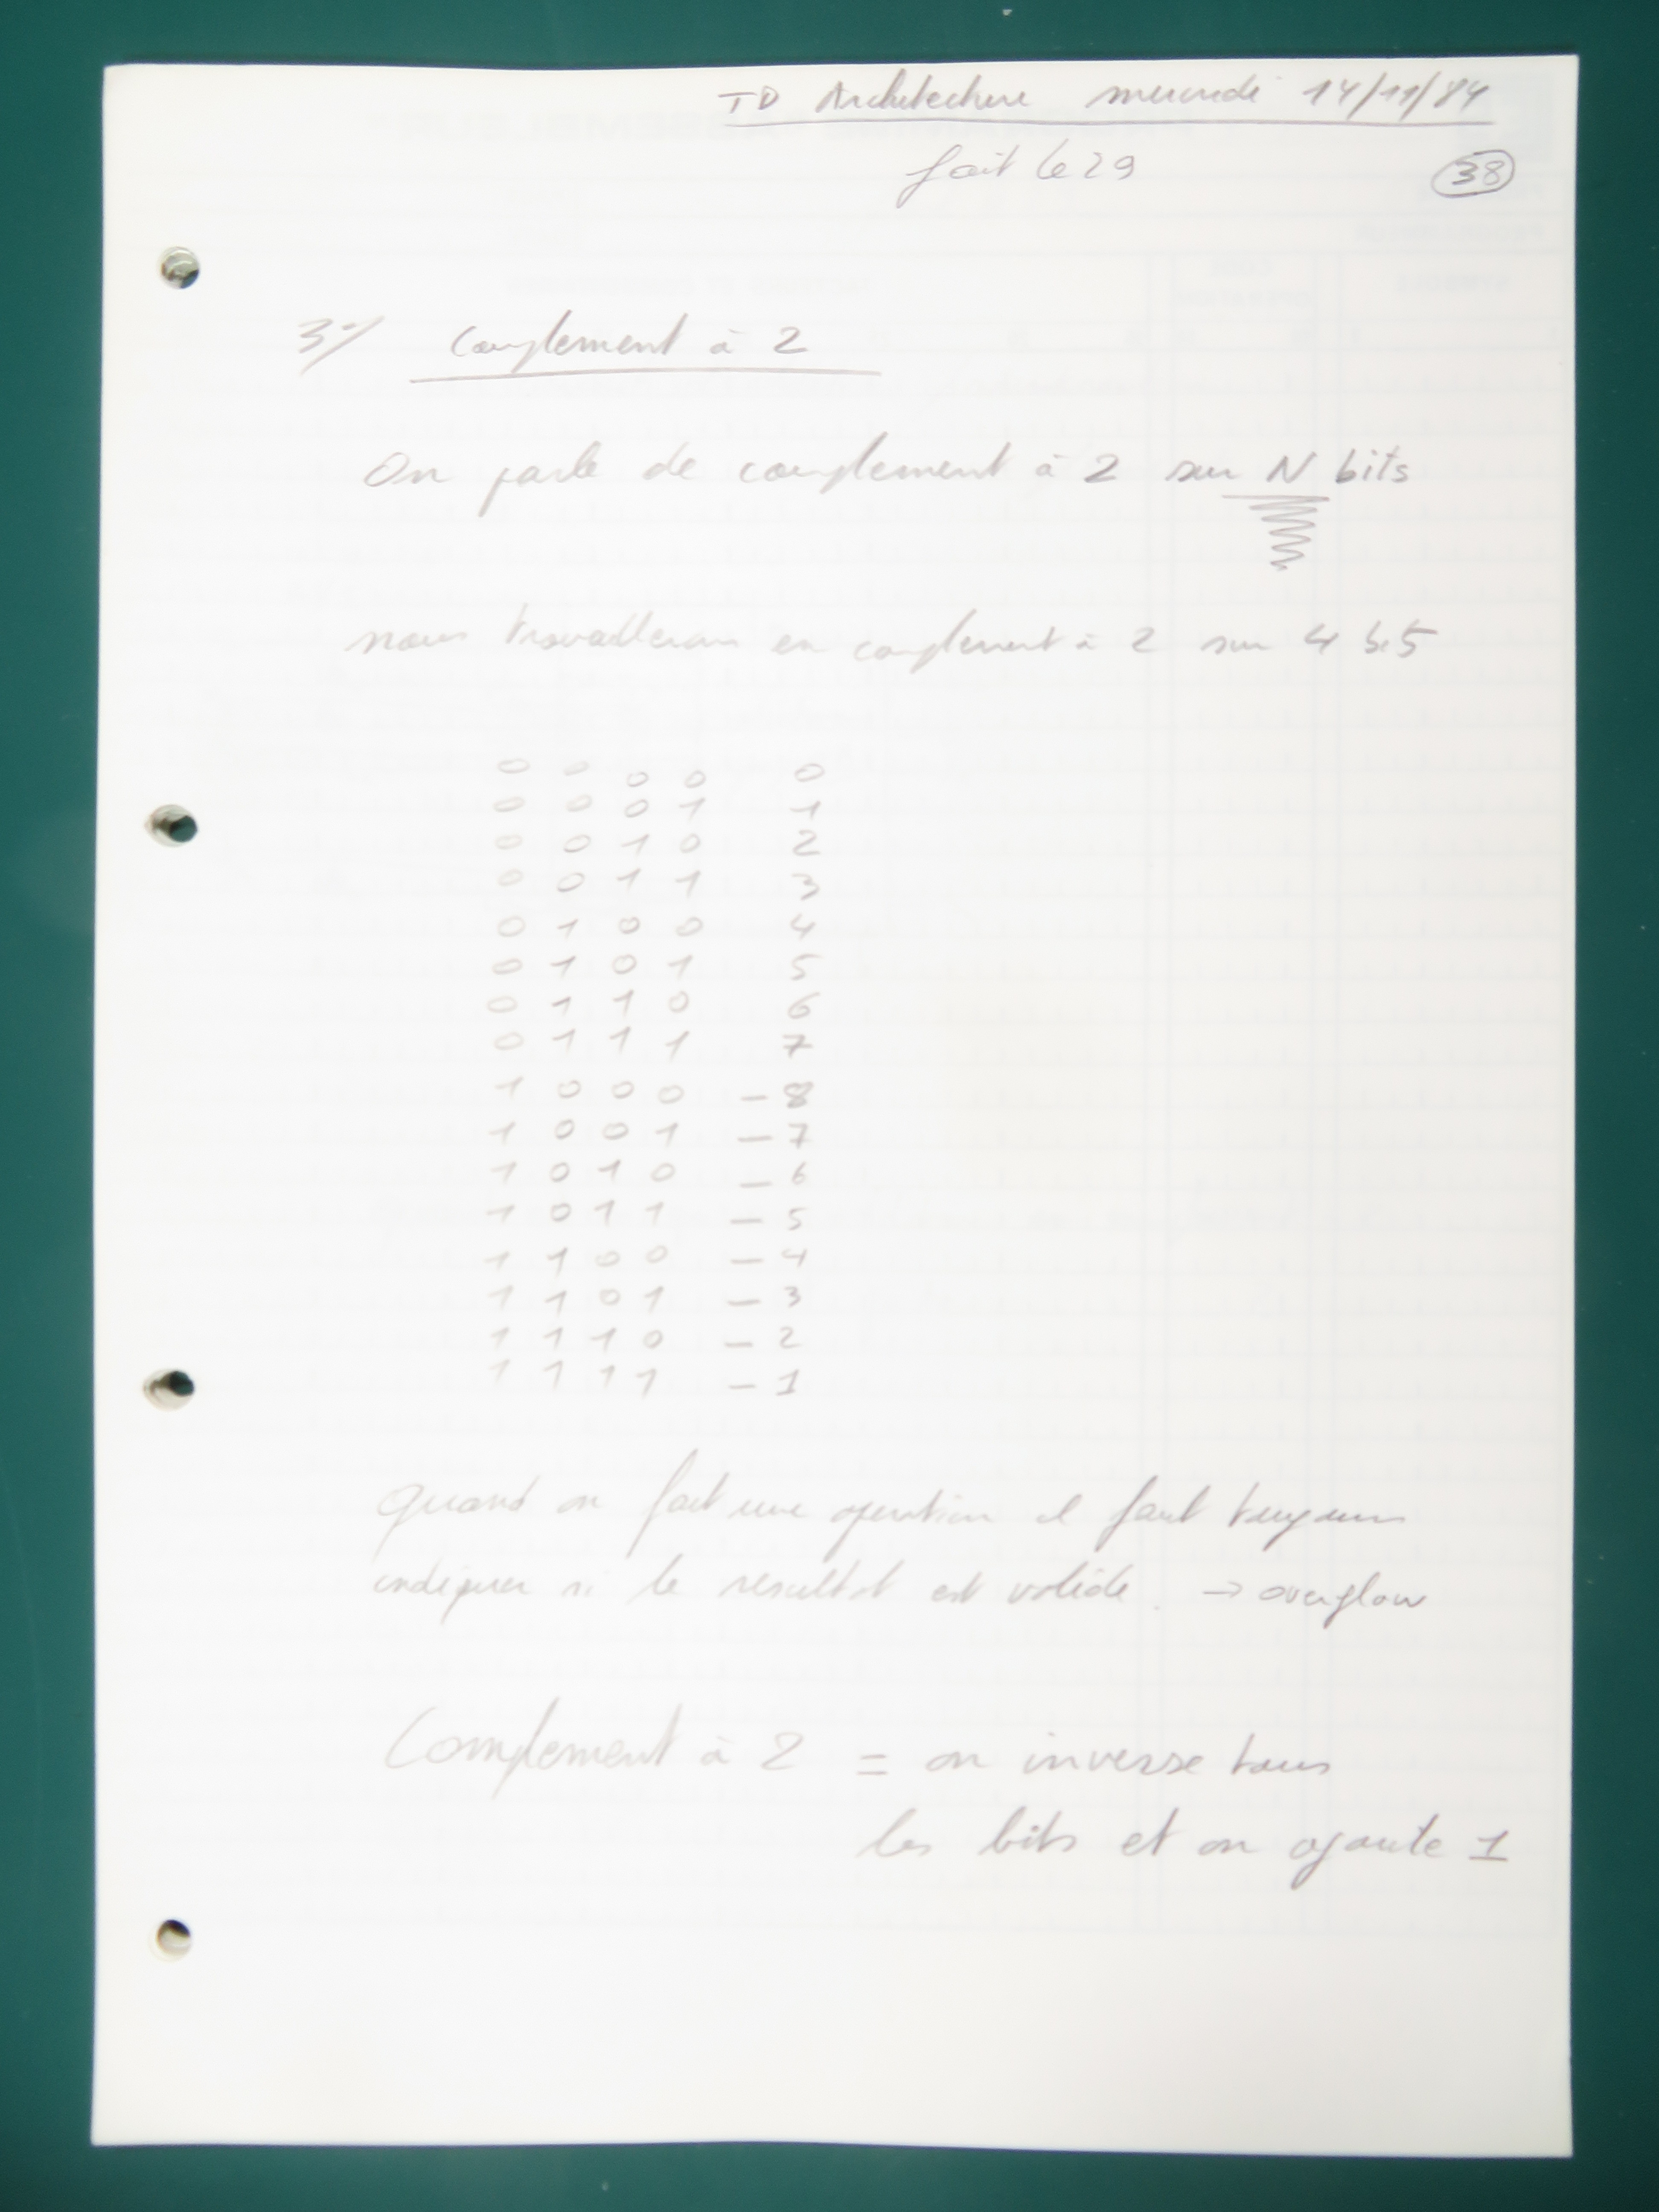 TD Architecture mercredi 14/11/84
fait le 29
38
3°/ Complement à 2
On parle de complement à 2 sur N bits
nous travaillerons en complement à 2 sur 4 bits
0 0 0 0 0
0 0 0 1 1
0 0 1 0 2
0 0 1 1 3
0 1 0 0 4
0 1 0 1 5
0 1 1 0 6
0 1 1 1 7
1 0 0 0 - 8
1 0 0 1 - 7
1 0 1 0 - 6
1 0 1 1 - 5
1 1 0 0 - 4
1 1 0 1 - 3
1 1 1 0 - 2
1 1 1 1 - 1
Quand on fait une operation il faut toujours
indiquer si le resultat est valide. → overflow
Complement à 2 = on inverse tous
les bits et on ajoute 1